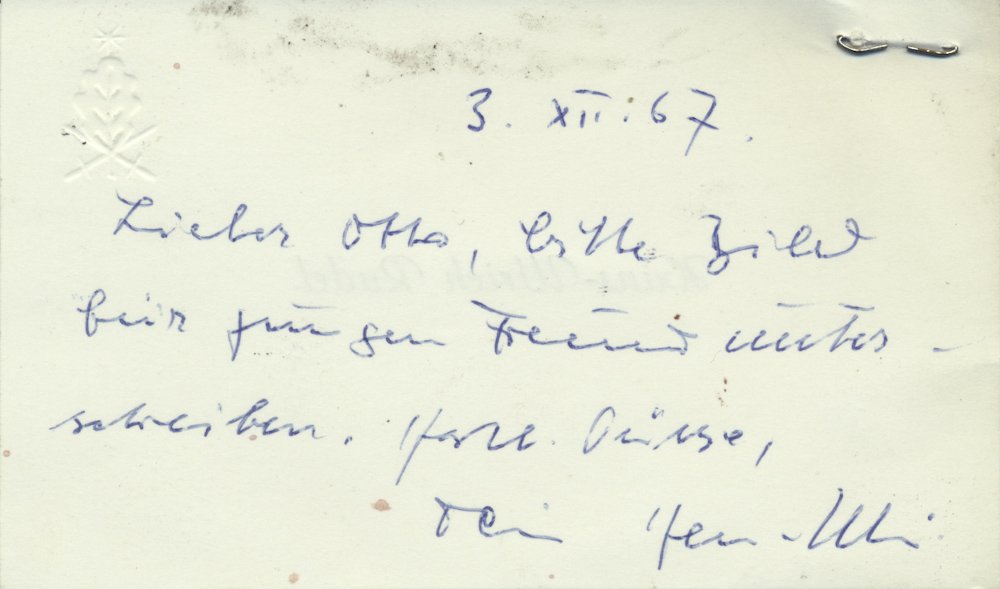 3. XII. 67.
Lieber Otto, bitte Bild
für jungen Freund unter-
schreiben. Herzl. Grüsse,
Dein Hans-Ulli
Hans-Ulrich Rudel